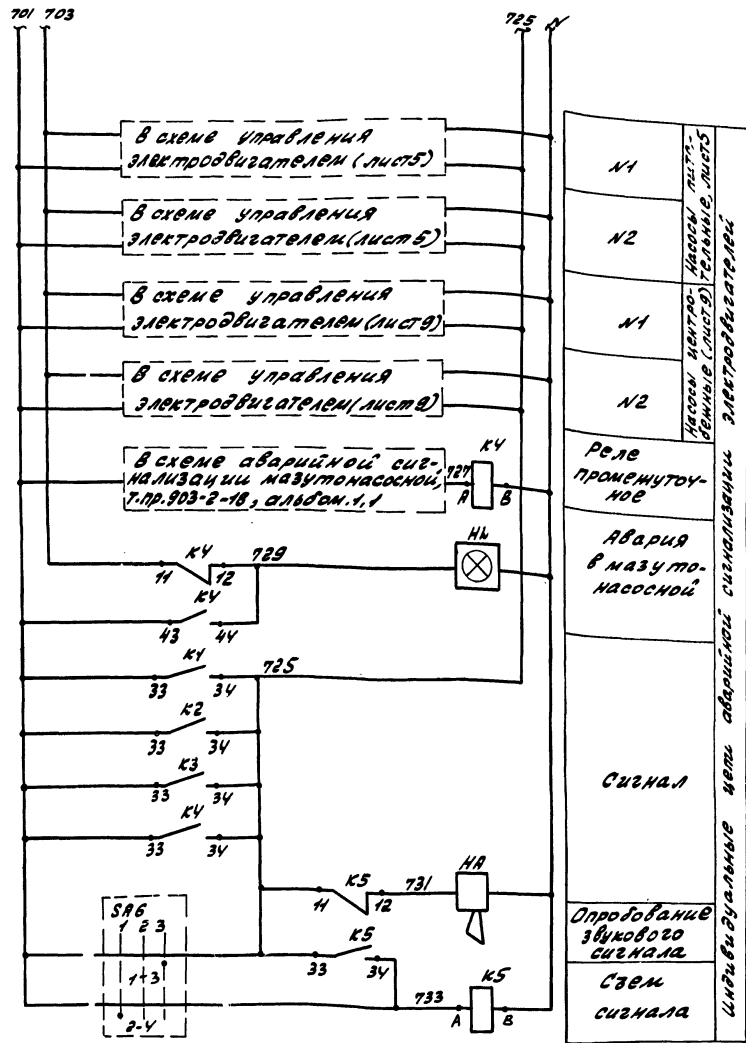 701 703
725 N
В схеме управления
электродвигателем (лист5)
В схеме управления
электродвигателем (лист 5)
В схеме управления
электродвигателем (лист9)
В схеме управления
электродвигателем (лист 9)
В схеме аварийной сиг-
нализации мазутонасосной,
т.пр.903-2-18, альбом.1,1
727
K4
A
B
HL
K4
11
12
729
K4
43
44
K1
33
34
725
K2
33
34
K3
33
34
K4
33
34
K5
11
12
731
HA
SA6
1 2 3
1-3
2-4
K5
33
34
733
K5
A
B
N1
N2
Насосы пита-
тельные, лист5
N1
N2
Насосы центро-
бежные (лист9)
Реле
промежуточ-
ное
Авария
в мазуто-
насосной
Сигнал
Опробование
звукового
сигнала
Съем
сигнала
Индивидуальные цепи аварийной сигнализации электродвигателей